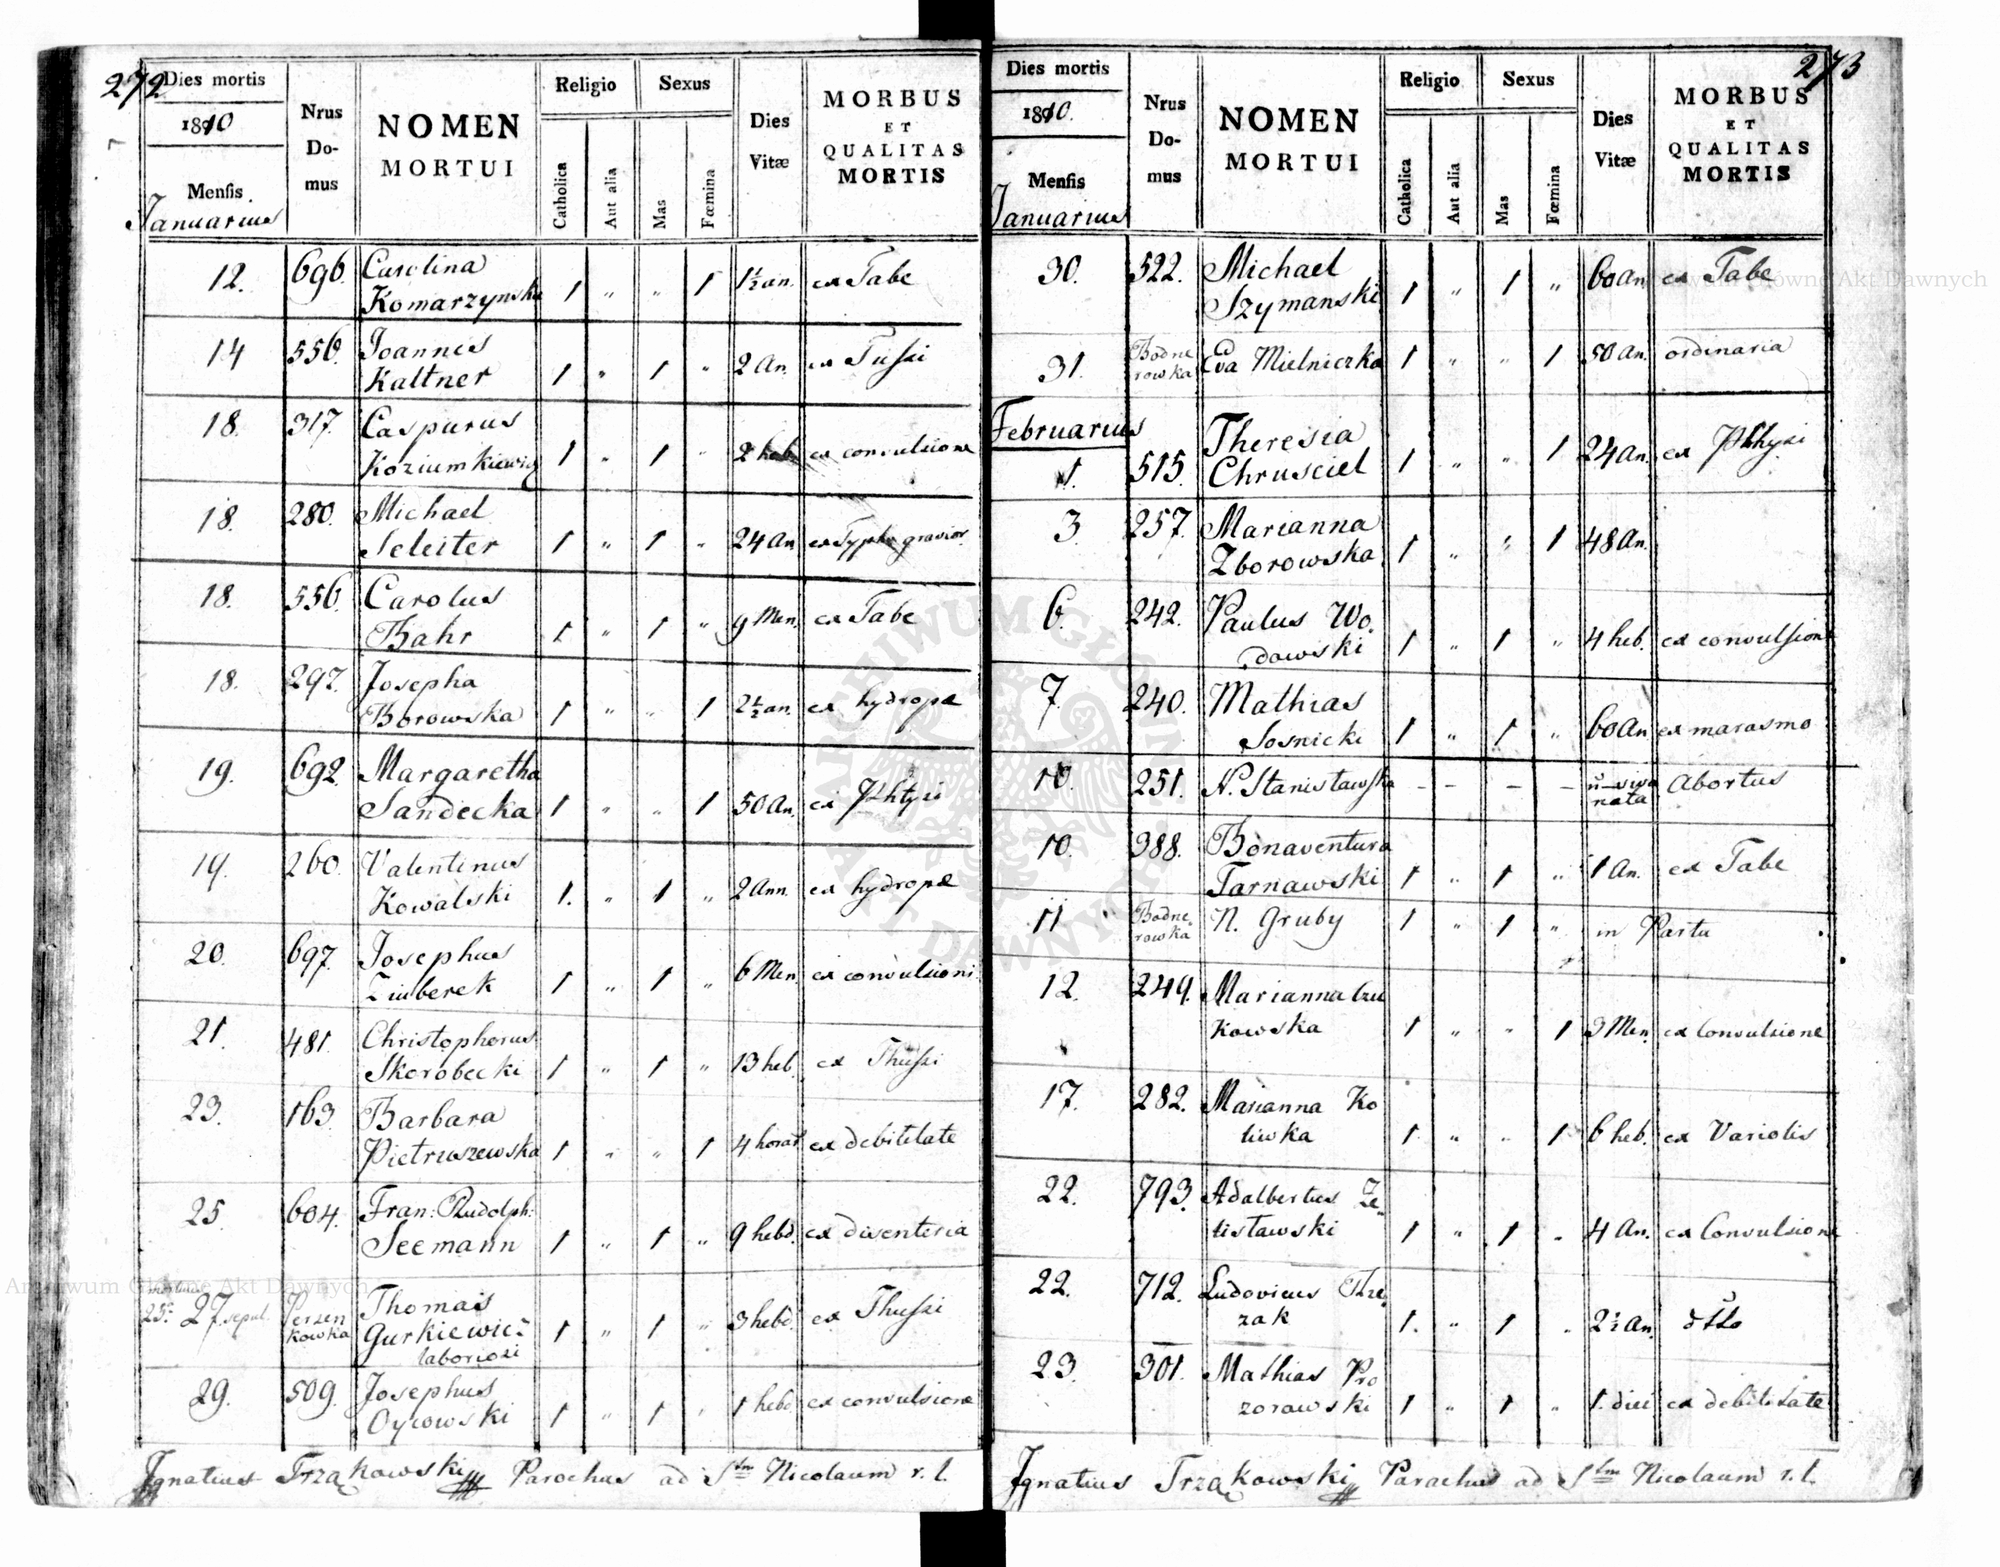 272
Dies mortis
1810
Mensis
Januarius
Nrus Do-mus
NOMEN MORTUI
Religio
Catholica
Aut alia
Sexus
Mas
Fœmina
Dies Vitæ
MORBUS ET QUALITAS MORTIS
12. 696. Carolina 1½ an. ex Tabe
Komarzynska 1 " " 1
14 556. Joannes 2 An. ex Tussi
Kaltner 1 " 1 "
18. 317. Casparus 2 heb. ex convulsione
Koziumkiewicz 1 " 1 "
18. 280. Michael 24 An. ex Typho gravior
Seleiter 1 " 1 "
18. 556. Carolus 9 Men. ex Tabe
Bahr 1 " 1 "
18. 297. Josepha 2½ an. ex hydrope
Borowska 1 " " 1
19. 692. Margaretha 50 An. ex Phtysi
Sandecka 1 " " 1
19. 260. Valentinus 2 Ann. ex hydrope
Kowalski 1. " 1 "
20. 697. Josephus 6 Men. ex convulsioni
Zimberek 1 " 1 "
21. 481. Christophorus 13 heb. ex Thussi
Skorobecki 1 " 1 "
23. 163. Barbara 4 horar ex debilitate
Pietruszewska 1 " " 1
25. 604. Fran: Rudolph: 9 hebd. ex disenteria
Seemann 1 " 1 "
mortuus 25. 27. sepul. Persenkowka Thomas 3 hebd. ex Thussi
Gurkiewicz 1 " 1 "
laboriosi
29. 509. Josephus 1 hebd ex convulsione
Oycowski 1 " 1 "
Ignatius Trząkowski Parochus ad Stm Nicolaum r. l.
273
Dies mortis
1810.
Mensis
Januarius
Nrus Do-mus
NOMEN MORTUI
Religio
Catholica
Aut alia
Sexus
Mas
Fœmina
Dies Vitæ
MORBUS ET QUALITAS MORTIS
30. 522. Michael 60 An. ex Tabe
Szymanski 1 " 1 "
31. Bodnerowka Eva Mielniczka 1 " " 1 50 An. ordinaria
Februarius
1. 515. Theresia 24 An. ex Phtysi
Chrusciel 1 " " 1
3 257. Marianna 48 An.
Zborowska 1 " " 1
6. 242. Paulus Wo- 4 heb. ex convulsione
dowski 1 " 1 "
7. 240. Mathias 60 An ex marasmo
Sosnicki 1 " 1 "
10. 251. N. Stanislawska - - - - n viva nata Abortus
10. 388. Bonaventura 1 An. ex Tabe
Tarnawski 1 " 1 "
11 Bodnerowka N. Gruby 1 " 1 " in Partu
12. 249. Marianna Czu
kowska 1 " " 1 3 Men. ex Convulsione
17. 282. Marianna Ko
liwka 1 " " 1 6 heb. ex Variolis
22. 793. Adalbertus Ze-
lislawski 1 " 1 " 4 An. ex Convulsione
22. 712. Ludovicus Trze-
zak 1. " 1 " 2½ An. dtto
23. 301. Mathias Pro
zorowski 1 " 1 " 1. diei ex debilitate
Ignatius Trząkowski Parochus ad Stm Nicolaum r. l.
Archiwum Główne Akt Dawnych
Archiwum Główne Akt Dawnych
ARCHIWUM GŁÓWNE AKT DAWNYCH